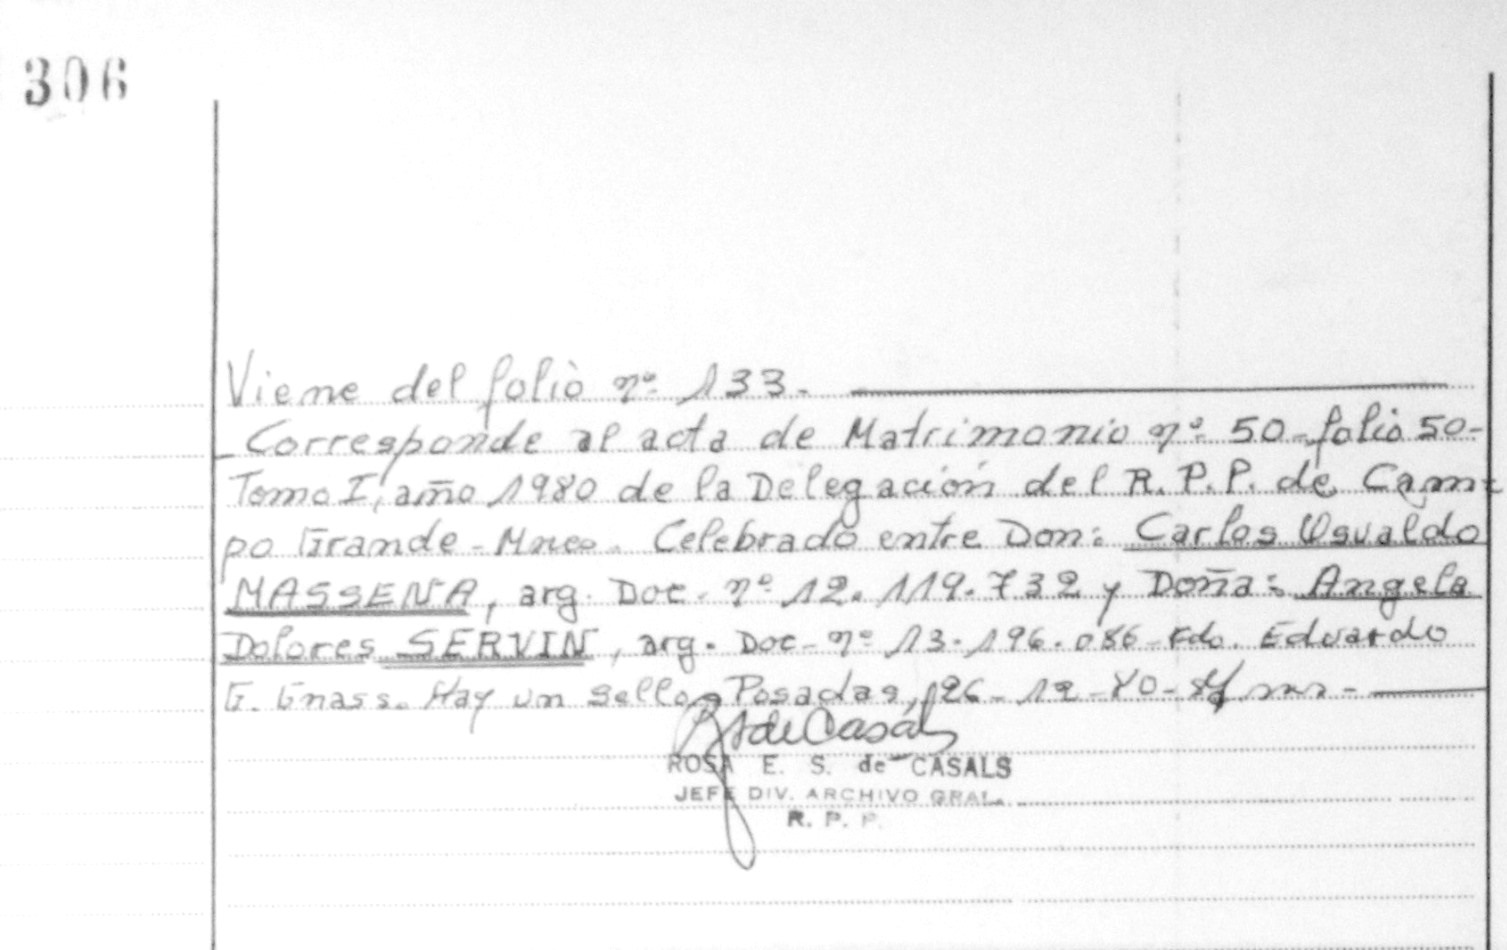 306
Viene del folio nº 133.
Corresponde al acta de Matrimonio nº 50-folio 50-
Tomo I, año 1980 de la Delegación del R.P.P. de Cam-
po Grande - Mnes. Celebrado entre Don: Carlos Osvaldo
MASSENA, arg. Doc. nº 12.119.732 y Doña: Angela
Dolores SERVIN, arg. Doc- nº 13.196.086- Fdo. Eduardo
G. Gnass. Hay un sello. Posadas, 26-12-80-
ROSA E. S. de CASALS
JEFE DIV. ARCHIVO GRAL.
R. P. P.